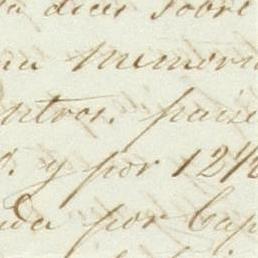 decir sobre
memori
ntros. paise
y por 12½
da por Cap